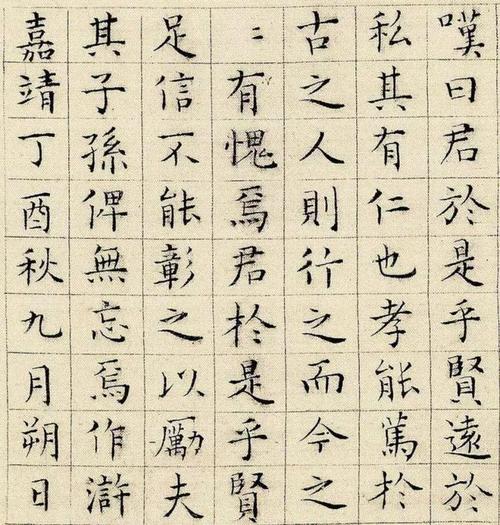 嘆曰君於是乎賢遠於
私其有仁也孝能篤於
古之人則行之而今之
〻有愧焉君於是乎賢
足信不能彰之以勵夫
其子孫俾無忘焉作滸
嘉靖丁酉秋九月朔日